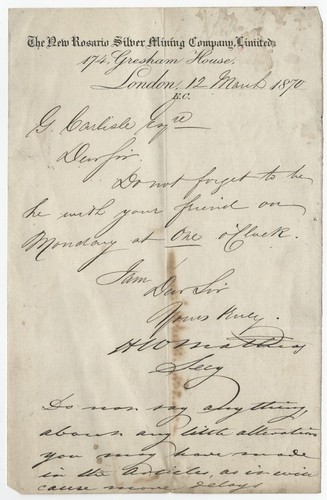 The New Rosario Silver Mining Company, Limited.
174, Gresham House,
London, 12 March 1870
E.C.
G. Carlisle Esqre
Dear Sir.
Do not forget to be
he with your friend on
Monday at One o'Clock.
I am
Dear Sir
Yours truly.
Secy
Do not say anything
about any little alteration
you may have made
in the Articles, as it will
cause more delays